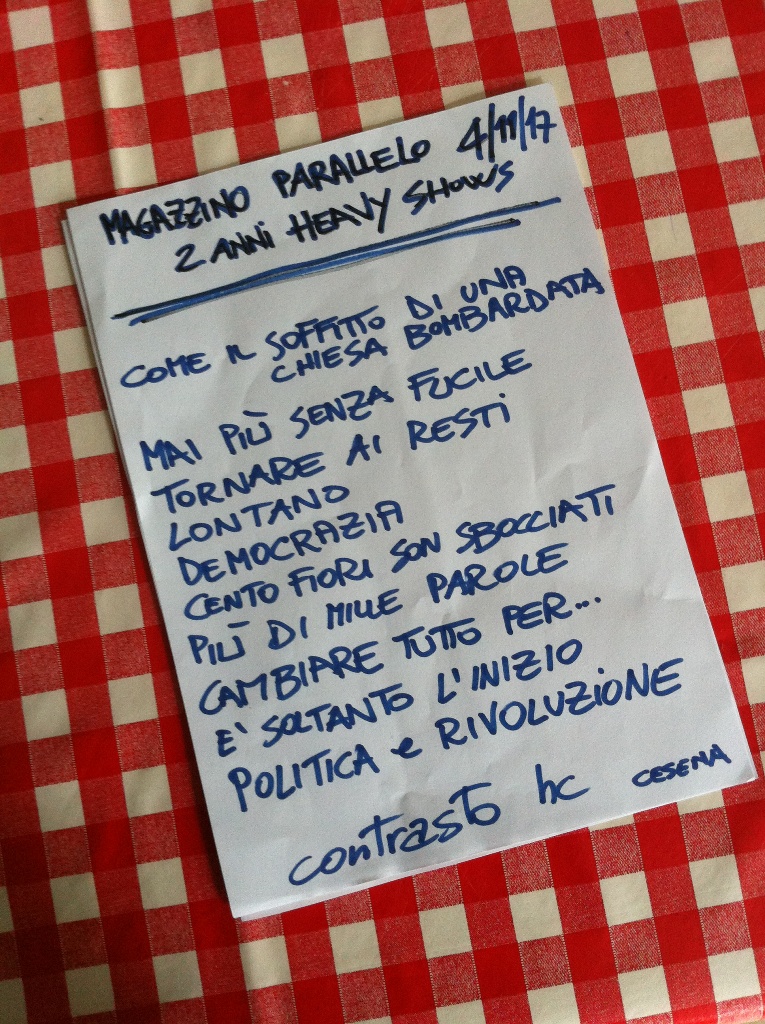 MAGAZZINO PARALLELO 4/11/17
2 ANNI HEAVY SHOWS
COME IL SOFFITTO DI UNA
CHIESA BOMBARDATA
MAI PIÙ SENZA FUCILE
TORNARE AI RESTI
LONTANO
DEMOCRAZIA
CENTO FIORI SON SBOCCIATI
PIÙ DI MILLE PAROLE
CAMBIARE TUTTO PER...
E' SOLTANTO L'INIZIO
POLITICA e RIVOLUZIONE
contrasto hc CESENA